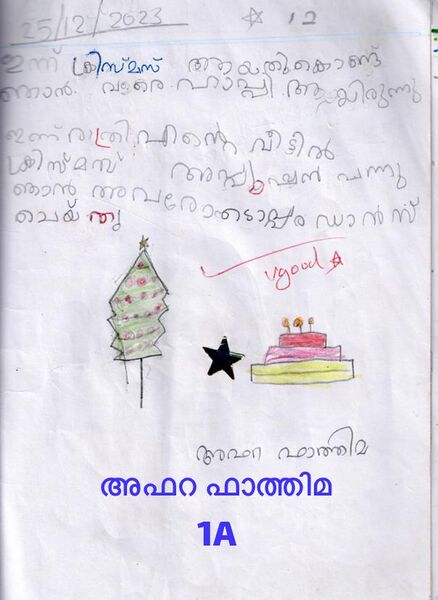 25/12/2023 12
ഇന്ന് ക്രിസ്മസ് ആയതുകൊണ്ട്
ഞാൻ വളരെ ഹാപ്പി ആയിരുന്നു
ഇന്ന് രാത്രി എന്റെ വീട്ടിൽ
ക്രിസ്മസ് അപ്പൂപ്പൻ വന്നു
ഞാൻ അവരോടൊപ്പം ഡാൻസ്
ചെയ്തു
vgood
അഫറ ഫാത്തിമ
അഫറ ഫാത്തിമ
1A